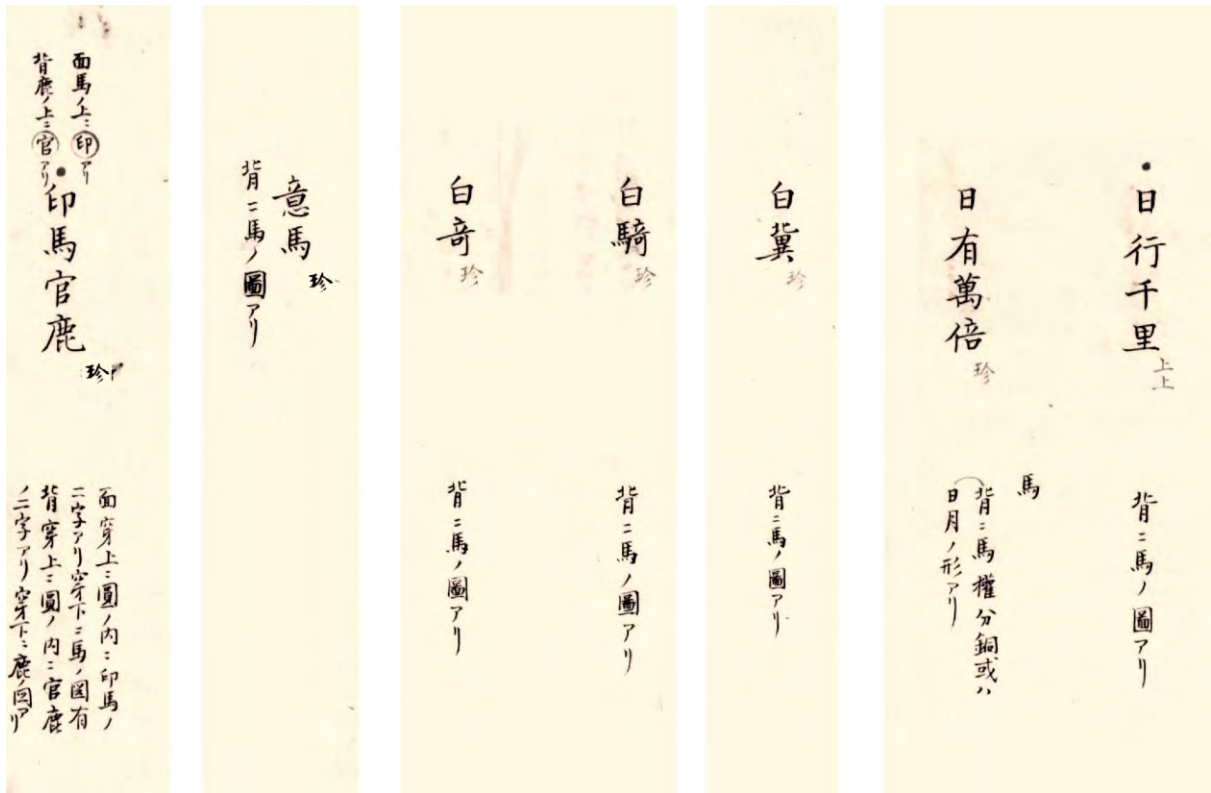 日行千里
上上
背ニ馬ノ圖アリ
日有萬倍
珍
馬
背ニ馬權分銅或ハ
日月ノ形アリ
白冀
珍
背ニ馬ノ圖アリ
白騎
珍
背ニ馬ノ圖アリ
白奇
珍
背ニ馬ノ圖アリ
意馬
珍
背ニ馬ノ圖アリ
面馬ノ上ニ印アリ
背鹿ノ上ニ官アリ
印馬官鹿
珍
面穿上ニ圓ノ内ニ印馬ノ
二字アリ穿下ニ馬ノ圖有
背穿上ニ圓ノ内ニ官鹿
ノ二字アリ穿下ニ鹿ノ図アリ